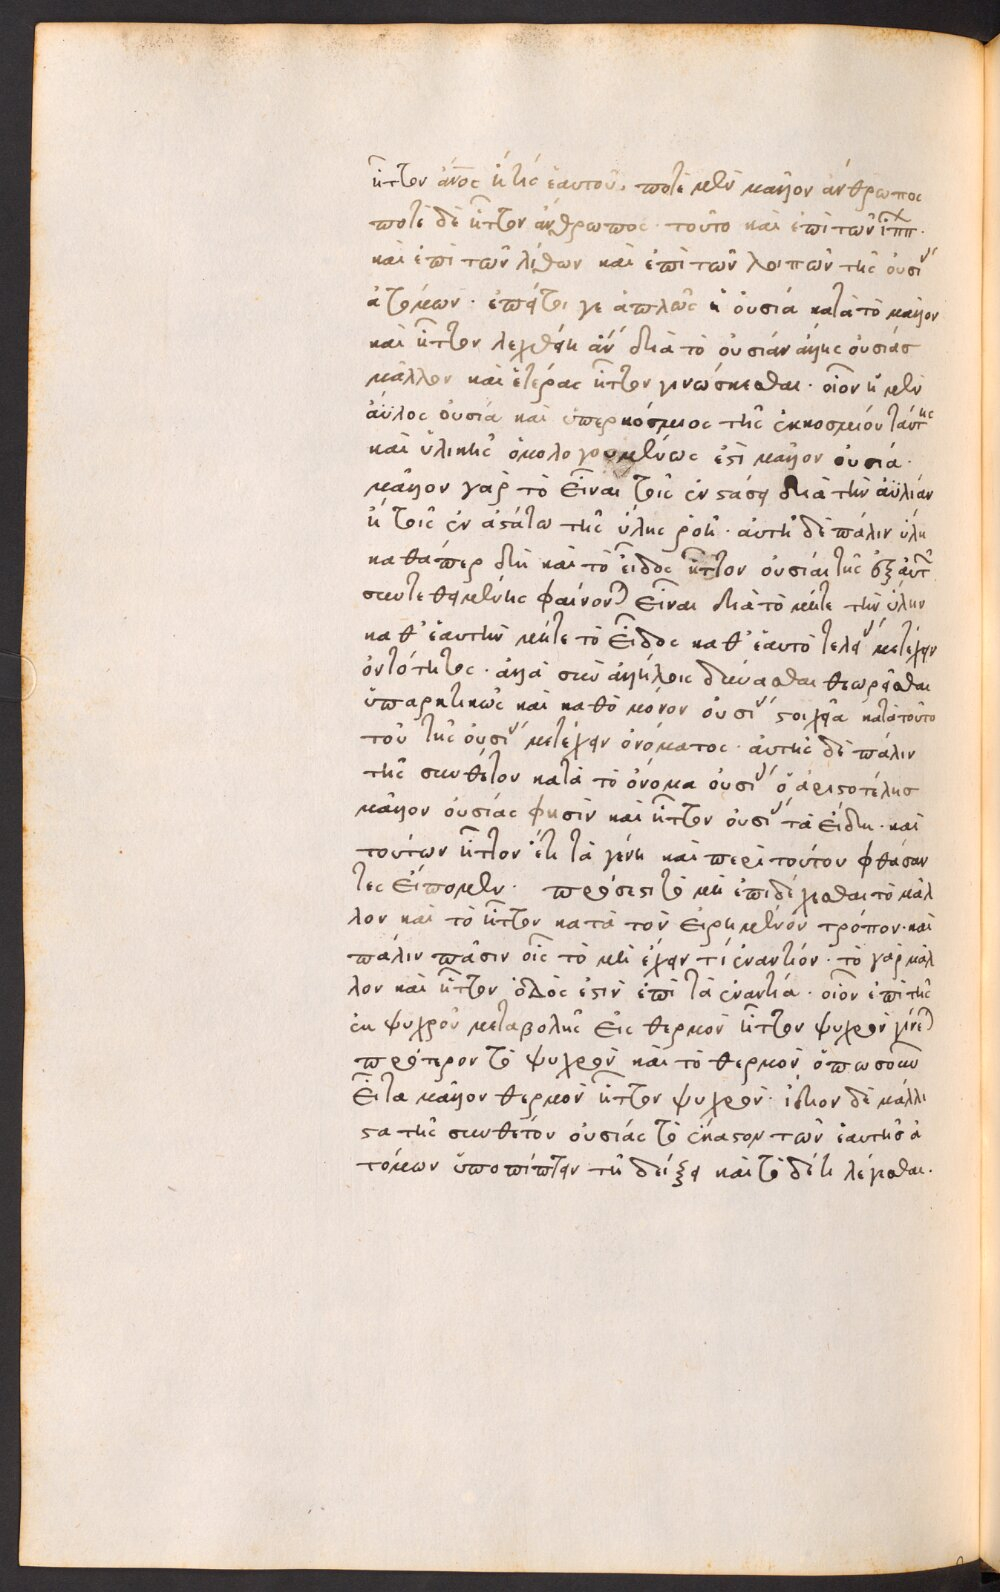 ἧττον ἄνος ἤ τις ἑαυτοῦ. ποτὲ μὲν μᾶλλον ἄνθρωπος
ποτὲ δὲ ἧττον ἄνθρωπος· τοῦτο καὶ ἐπὶ τῶν ἵππ·
καὶ ἐπὶ τῶν λίθων καὶ ἐπὶ τῶν λοιπῶν τῆς οὐσί
ἀτόμων· ἐπείτοι γε ἁπλῶς ἡ οὐσία κατὰ τὸ μᾶλλον
καὶ ἧττον λεχθείη ἂν διὰ τὸ οὐσίαν ἄλλης οὐσίας
μᾶλλον καὶ ἑτέρας ἧττον γινώσκεσθαι· οἷον ἡ μὲν
ἄϋλος οὐσία καὶ ὑπερκόσμιος τῆς ἐγκοσμίου ταύτης
καὶ ὑλικῆς ὁμολογουμένως ἐστὶ μᾶλλον οὐσία·
μᾶλλον γὰρ τὸ εἶναι τοῖς ἐν στάσει διὰ τὴν ἀϋλίαν
ἢ τοῖς ἐν ἀστάτω τῆς ὕλης ῥοῆ· αὐτὴ δὲ πάλιν ὕλη
καθάπερ δὴ καὶ τὸ εἶδος ἧττον οὐσίαι τῆς ἐξ αὐτ
συντεθειμένης φαίνονται εἶναι διὰ τὸ μήτε τὴν ὕλην
καθ' ἑαυτὴν μήτε τὸ εἶδος καθ' ἑαυτὸ τελεί μετέχειν
ὀντότητος· ἀλλὰ σὺν ἀλλήλοις δύνασθαι θεωρεῖσθαι
ὑπαρκτικῶς καὶ καθὸ μόνον οὐσί στοιχεῖα κατὰ τοῦτο
τοῦ τῆς οὐσί μετέχειν ὀνόματος· αὐτῆς δὲ πάλιν
τῆς συνθέτου κατὰ τὸ ὄνομα οὐσί ὁ ἀριστοτέλης
μᾶλλον οὐσίας φησὶν καὶ ἧττον οὐσί τὰ εἴδη· καὶ
τούτων ἧττον ἔτι τὰ γένη καὶ περὶ τούτου φθάσαν
τες εἴπομεν· πρόσεστι τὸ μὴ ἐπιδέχεσθαι τὸ μᾶλ
λον καὶ τὸ ἧττον κατὰ τὸν εἰρημένον τρόπον· καὶ
πάλιν πᾶσιν οἷς τὸ μὴ ἔχειν τί ἐναντίον· τὸ γὰρ μᾶλ
λον καὶ ἧττον ὁδός ἐστὶν ἐπὶ τὰ ἐναντία· οἷον ἐπὶ τῆς
ἐκ ψυχροῦ μεταβολῆς εἰς θερμὸν ἧττον ψυχρὸν γίνεται
πρότερον τὸ ψυχρὸν καὶ τὸ θερμὸν ὁπωσοῦν
εἶτα μᾶλλον θερμὸν ἧττον ψυχρόν· ἴδιον δὲ μάλι
στα τῆς συνθέτου οὐσίας τὸ ἕκαστον τῶν ἑαυτῆς ἀ
τόμων ὑποπίπτειν τῆ δείξει καὶ τόδέ τι λέγεσθαι.